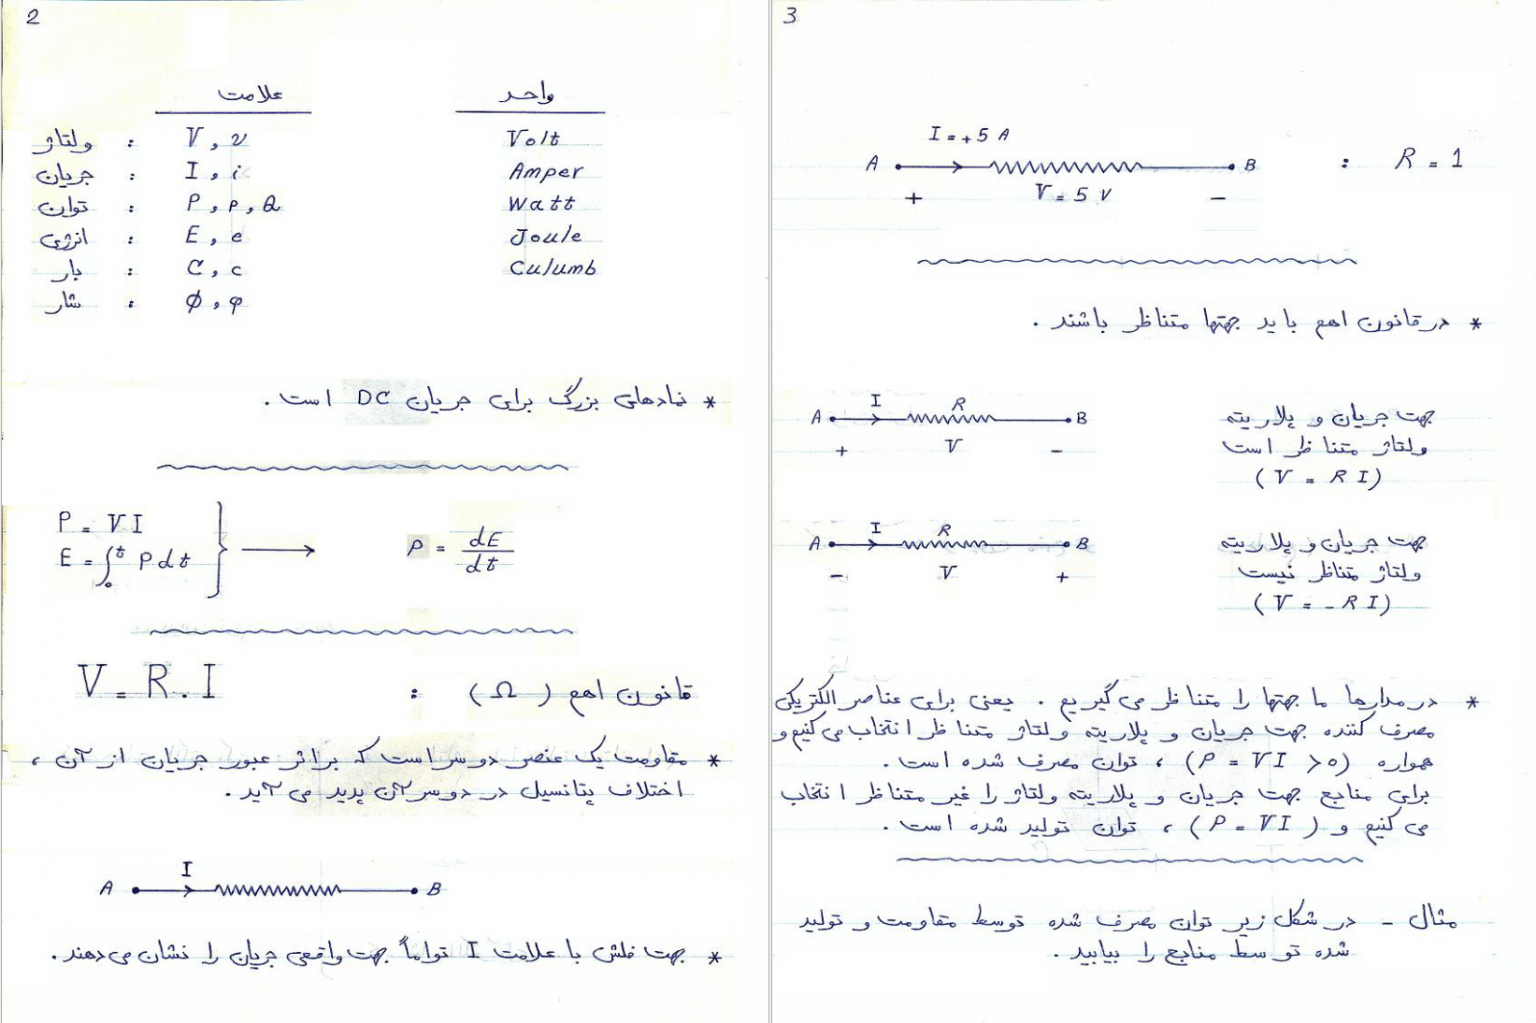 2
علامت واحد
ولتاژ : V , v Volt
جریان : I , i Amper
توان : P , p , Q Watt
انرژی : E , e Joule
بار : C , c Culumb
شار : Φ , φ
* نمادهای بزرگ برای جریان DC است .
P = VI
E = ∫₀ᵗ P dt } ⟶ P = dE/dt
قانون اهم ( Ω ) : V = R . I
* مقاومت یک عنصر دو سر است که بر اثر عبور جریان از آن ،
اختلاف پتانسیل در دو سر آن پدید می آید .
I
A B
* جهت فلش با علامت I تواماً جهت واقعی جریان را نشان می دهند .
3
I = +5 A
A B : R = 1
+ V = 5 V -
* در قانون اهم باید جهتها متناظر باشند .
I R
A B جهت جریان و پلاریته
+ V - ولتاژ متناظر است
( V = R I )
I R
A B جهت جریان و پلاریته
- V + ولتاژ متناظر نیست
( V = - R I )
* در مدارها ما جهتها را متناظر می گیریم . یعنی برای عناصر الکتریکی
مصرف کننده جهت جریان و پلاریته ولتاژ متناظر انتخاب می کنیم و
همواره ( P = VI > 0 ) ، توان مصرف شده است .
برای منابع جهت جریان و پلاریته ولتاژ را غیر متناظر انتخاب
می کنیم و ( P = VI ) ، توان تولید شده است .
مثال - در شکل زیر توان مصرف شده توسط مقاومت و تولید
شده توسط منابع را بیابید .